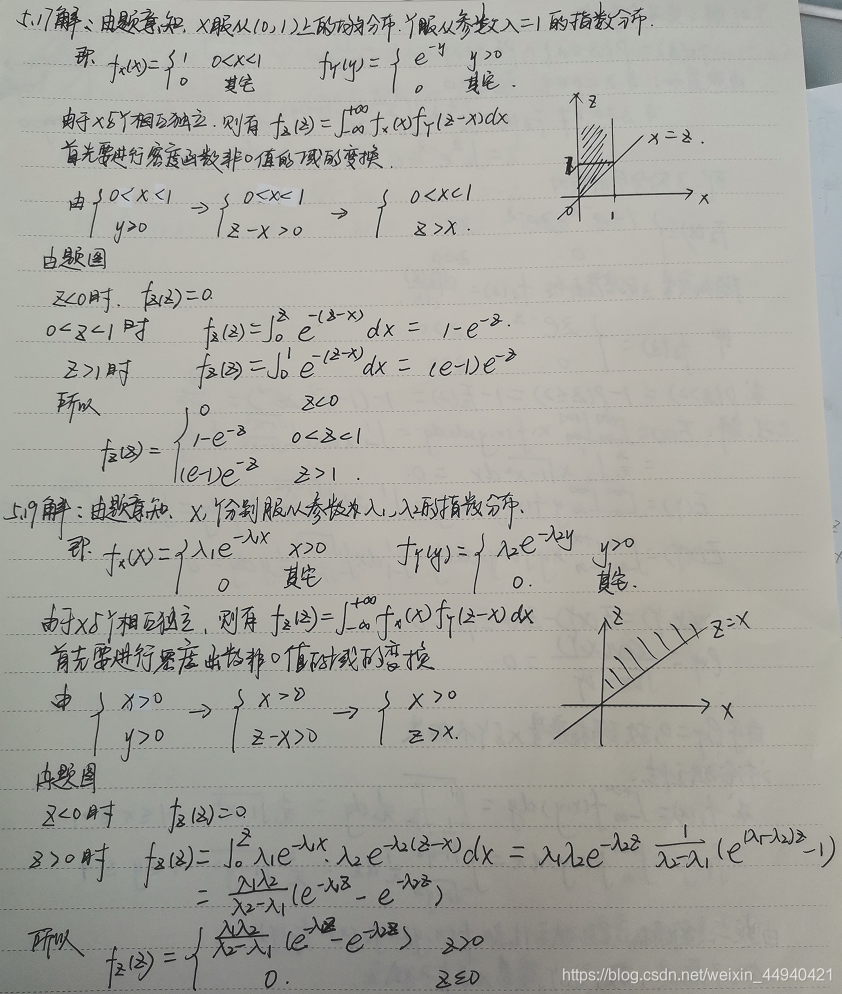 5.17解：由题意知，X服从(0,1)上的均匀分布，Y服从参数λ=1的指数分布.
即 fx(x)={ 1 0<x<1 fY(y)={ e^-y y>0
0 其它 0 其它.
由于X与Y相互独立，则有 fz(z)=∫_-∞^+∞ fx(x)fY(z-x)dx
首先要进行密度函数非0值的域的变换.
由{ 0<x<1 → { 0<x<1 → { 0<x<1
y>0 z-x>0 z>x.
z
x=z.
x
0 1
由题图
z<0时. fz(z)=0.
0<z<1时 fz(z)=∫_0^z e^-(z-x) dx = 1-e^-z.
z>1时 fz(z)=∫_0^1 e^-(z-x) dx = (e-1)e^-z
所以
fz(z)={ 0 z<0
1-e^-z 0<z<1
(e-1)e^-z z>1.
5.19解：由题意知. X,Y分别服从参数为λ1,λ2的指数分布.
即. fx(x)={ λ1e^-λ1x x>0 fY(y)={ λ2e^-λ2y y>0
0 其它 0. 其它.
由于X与Y相互独立，则有 fz(z)=∫_-∞^+∞ fx(x)fY(z-x)dx
首先要进行密度函数非0值的域的变换
由{ x>0 → { x>0 → { x>0
y>0 z-x>0 z>x.
z
z=x
x
由题图
z<0时 fz(z)=0.
z>0时 fz(z)=∫_0^z λ1e^-λ1x·λ2e^-λ2(z-x)dx = λ1λ2e^-λ2z 1/(λ2-λ1) (e^(λ1-λ2)z -1)
= λ1λ2/(λ2-λ1) (e^-λ1z - e^-λ2z)
所以
fz(z)={ λ1λ2/(λ2-λ1) (e^-λ1z - e^-λ2z) z>0
0. z≤0
https://blog.csdn.net/weixin_44940421